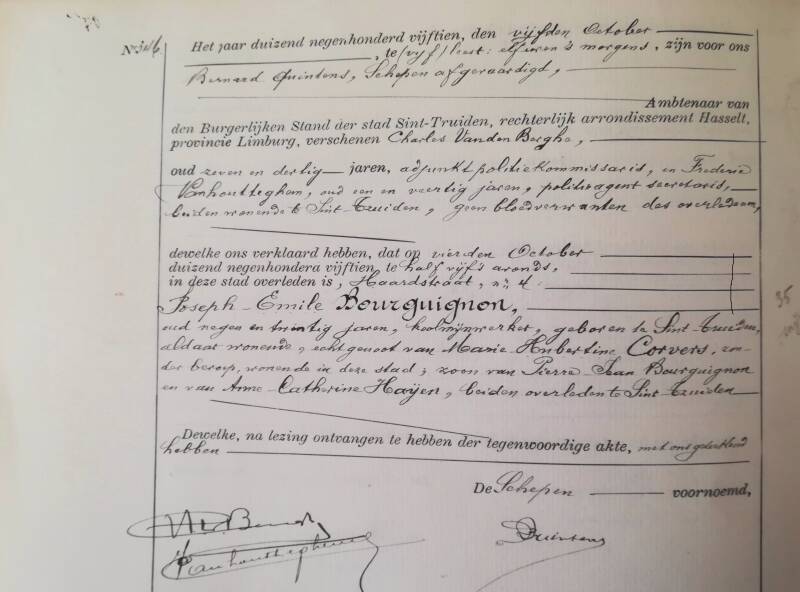 Het jaar duizend negenhonderd vijftien, den vijfden October
te (vijf) leest: elf uren 's morgens, zijn voor ons
Bernard Quintens, Schepen afgevaardigd,
Ambtenaar van
den Burgerlijken Stand der stad Sint-Truiden, rechterlijk arrondissement Hasselt,
provincie Limburg, verschenen Charles Vanden Berghe,
oud zeven en dertig jaren, adjunkt politiekommissaris, en Frederic
Vanhoutteghem, oud een en veertig jaren, politieagent secretaris,
beiden wonende te Sint-Truiden, geen bloedverwanten des overledenen,
dewelke ons verklaard hebben, dat op vierden October
duizend negenhonderd vijftien, te half vijf 's avonds,
in deze stad overleden is, Haardstraat, nr. 4.
Joseph-Emile Bourguignon,
oud negen en twintig jaren, koolmijnwerker, geboren te Sint-Truiden,
aldaar wonende, echtgenoot van Marie Hubertine Corvers, zon-
der beroep, wonende in deze stad; zoon van Pierre Jean Bourguignon
en van Anne-Catherine Hayen, beiden overleden te Sint-Truiden
Dewelke, na lezing ontvangen te hebben der tegenwoordige akte, met ons geteekend
hebben
De Schepen voornoemd,
Quintens
Vanhoutteghem